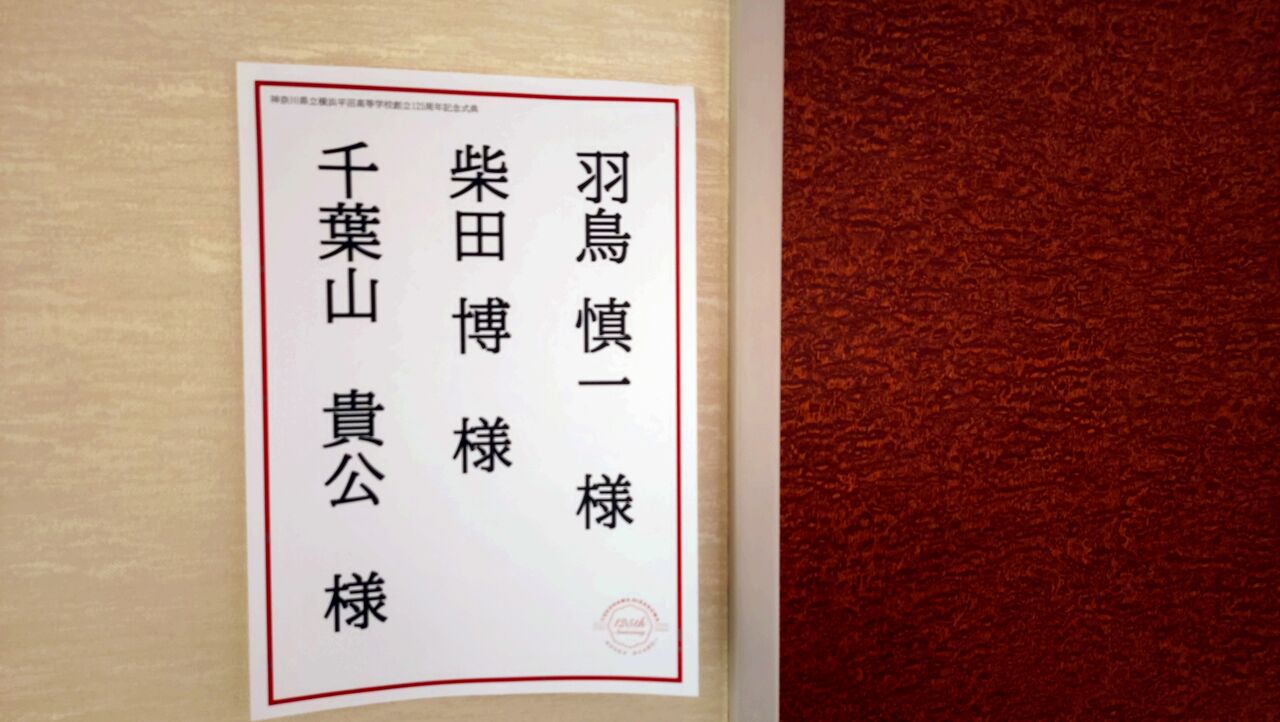 神奈川県立横浜平沼高等学校創立125周年記念式典
羽鳥 慎一 様
柴田 博 様
千葉山 貴公 様
125th
Anniversary